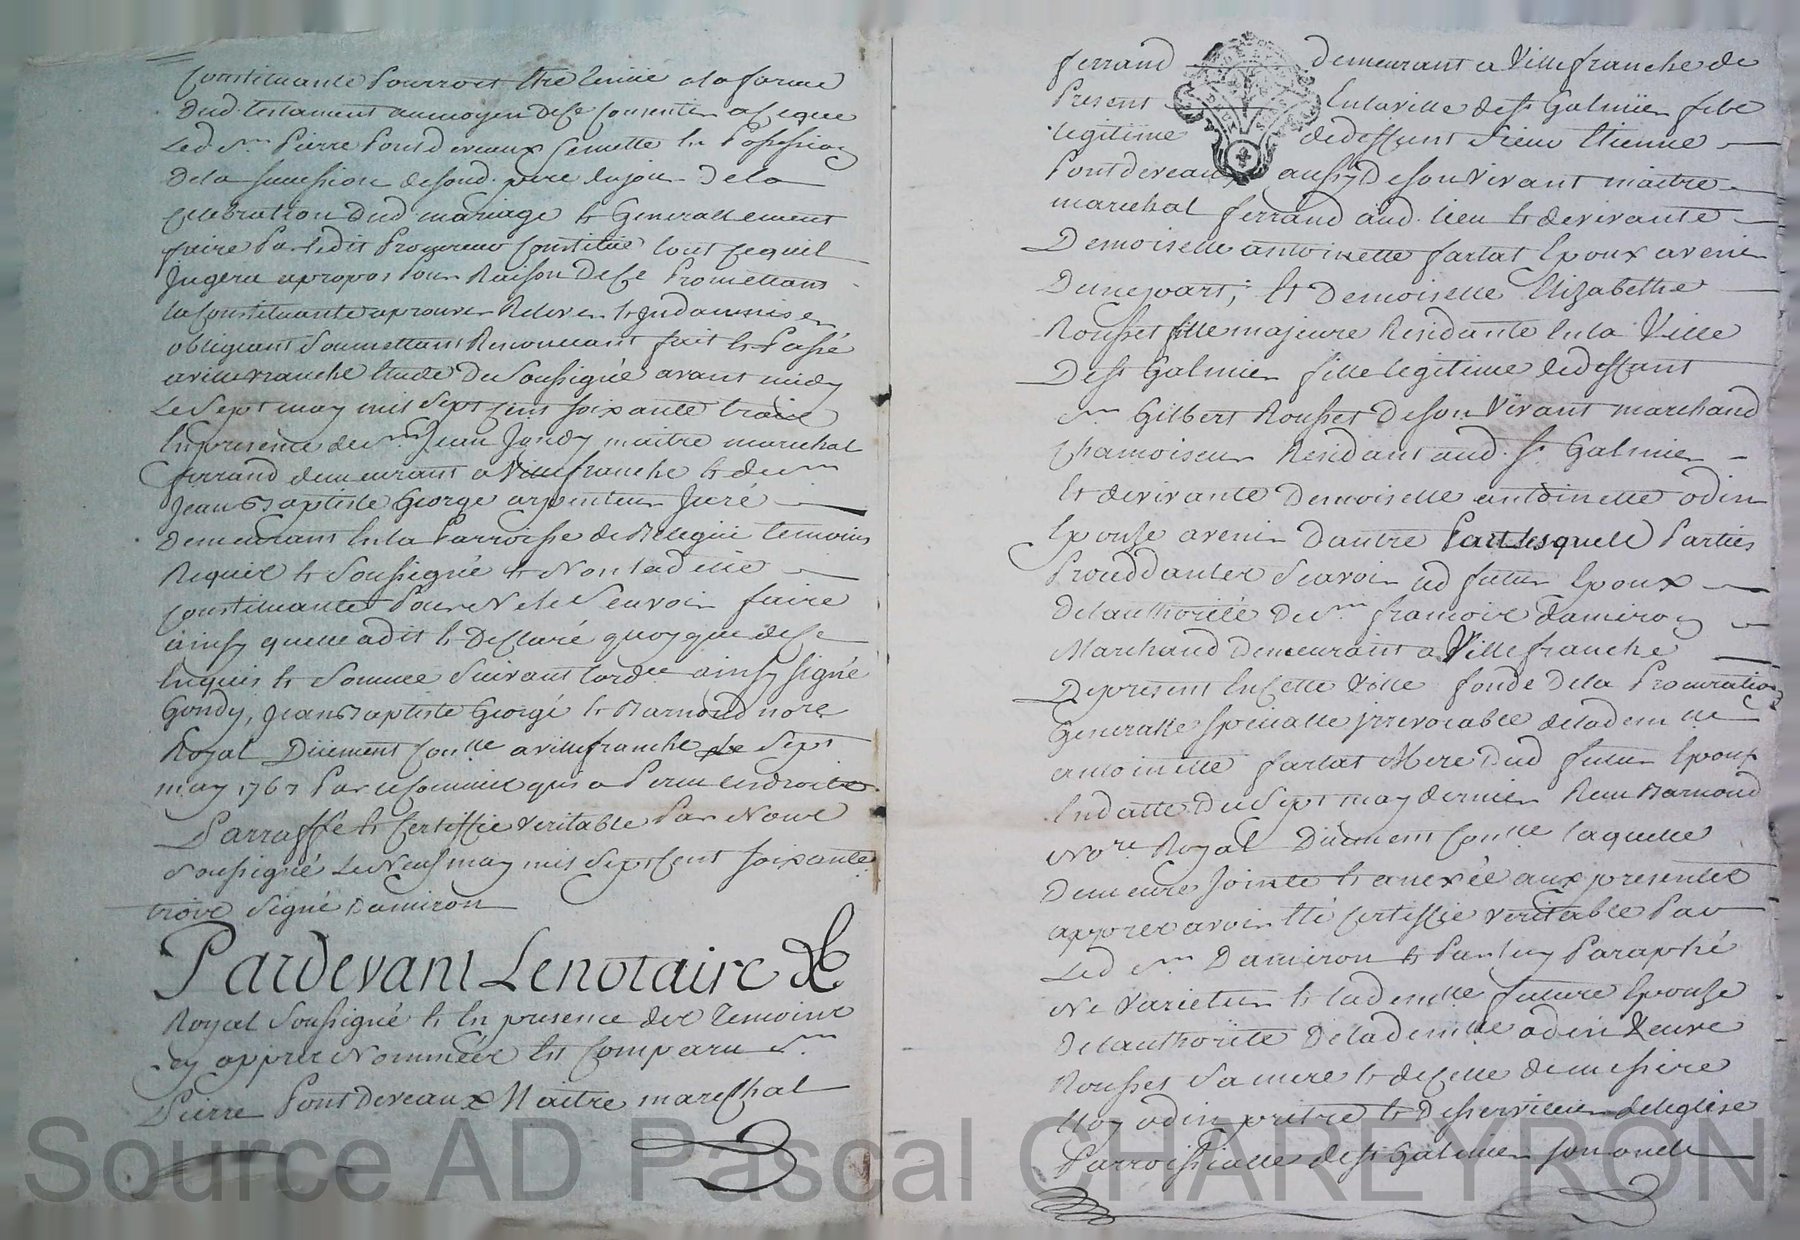 Constituante Pourroit Etre tenüe a la forme
Dud. testament aumoyen dece Consentir aceque
Led. Sr. Pierre Pontdeveaux Semette En Possession
Dela Succession desond. pere dujour Dela
Celebration Dud. mariage Et Generallement
faire Par ledit Procureur Constitué tout cequil
Jugera apropos Pour Raison Dece Promettant
la Constituante aprouver Relever Et Indamniser
obligeant Soumettant Renonceant fait Et Passé
avillefranche Etude Du Soussigné avant midy
Le Sept may mil Sept Cent Soixante trois
En presence de Sr. Jean Gondy maitre marechal
ferrand demeurant a Villefranche Et de Sr.
Jean Baptiste George arpenteur Juré
Demeurant En la Parroisse de temoins
Requis Et Soussigné Et Non ladite
Constituante Pour Ne le Scavoir faire
ainsy quelle adit Et Declaré quoyque dece
Enquis Et Sommée Suivant lordce ainsy signé
Gondy, Jean Baptiste George Et Barnoud nore
Royal Düement Conlle avillefranche le Sept
may 1763 Par le Commis quis a Percu les droits
Parraffé Et Certiffié Veritable Par Nous
Soussigné Le Neuf may mil Sept Cent Soixante
trois Signé Damiron
Pardevant Le notaire &
Royal Soussigné Et En presence des Temoins
cy apprès Nommées Est Comparu Sr.
Pierre Pont Deveaux Maitre mareschal
ferrand demeurant a Villefranche de
Present En laville de St Galmier fils
legitime dedeffunt Sieur Etienne
Pontdeveaux aussy De son Vivant maitre
marechal ferrand aud. lieu Et devivante
Demoiselle antoinette farlat Epoux avenir
Dunepart; Et Demoiselle Elizabethe
Rousset fille majeure Residante En la Ville
De St Galmier fille legitime dedeffunt
Sr. Gilbert Rousset Deson Vivant marchand
Chamoiseur Residant aud. St Galmier
Et devivante Demoiselle antoinette odin
Epouse avenir Dautre Part Lesquelles Parties
Procéddantes Scavoir led futur Epoux
Delauthorité de Sr. francois Damiron
Marchand Demeurant a Villefranche
Depresent En Cette Ville fondé Dela Procuration
Generalle Specialle irrevocable deladem lle
antoinette farlat Mere Dud futur Epoux
En datte Du Sept may dernier Recu Barnoud
Nore Royal Düement Conlle laquelle
Demeure Jointe Et anexée aux presentes
appres avoir Eté Certiffié Veritable Par
Led Sr. Damiron Et Par luy Paraphé
Ne Varietur Et lademlle future Epouse
Delauthorité Delademlle odin Veuve
Rousset Sa mere Et decelle de messire
odin prêtre Et Desserviteur deleglise
Parroissialle de St Galmier Son oncle
Source AD Pascal CHAREYRON